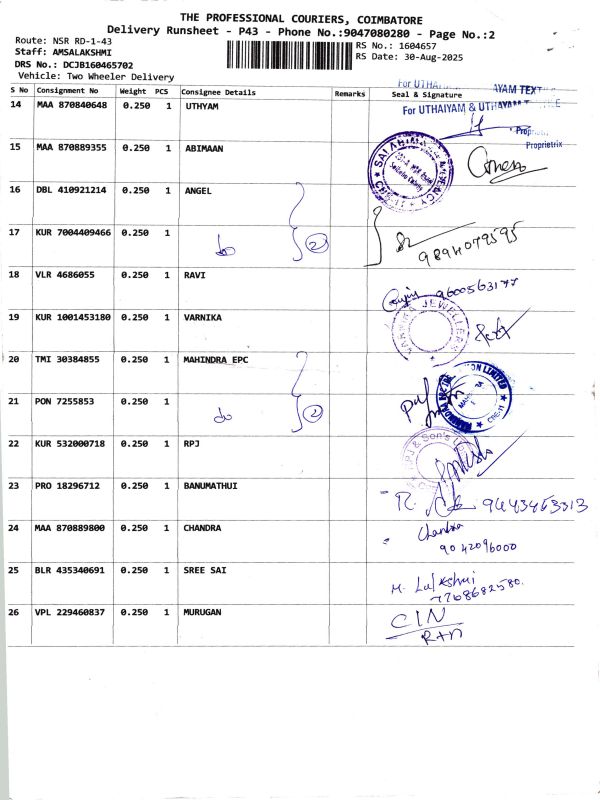 THE PROFESSIONAL COURIERS, COIMBATORE
Delivery Runsheet - P43 - Phone No.:9047080280 - Page No.:2
Route: NSR RD-1-43
Staff: AMSALAKSHMI
DRS No.: DCJB160465702
Vehicle: Two Wheeler Delivery
RS No.: 1604657
RS Date: 30-Aug-2025
S No Consignment No Weight PCS Consignee Details Remarks Seal & Signature
14 MAA 870840648 0.250 1 UTHYAM
For UTHAIYAM & UTHAYAM TEXTILE
Proprietrix
15 MAA 870889355 0.250 1 ABIMAAN
16 DBL 410921214 0.250 1 ANGEL
17 KUR 7004409466 0.250 1
do 2
9894079595
18 VLR 4686055 0.250 1 RAVI
9600563177
19 KUR 1001453180 0.250 1 VARNIKA
VARNIKA JEWELLERS
20 TMI 30384855 0.250 1 MAHINDRA EPC
21 PON 7255853 0.250 1
do 2
22 KUR 532000718 0.250 1 RPJ
RPJ & Son's
23 PRO 18296712 0.250 1 BANUMATHUI
9643463313
24 MAA 870889800 0.250 1 CHANDRA
Chandra
9042096000
25 BLR 435340691 0.250 1 SREE SAI
M. Lakshmi
7708682580.
26 VPL 229460837 0.250 1 MURUGAN
C/N
R+n